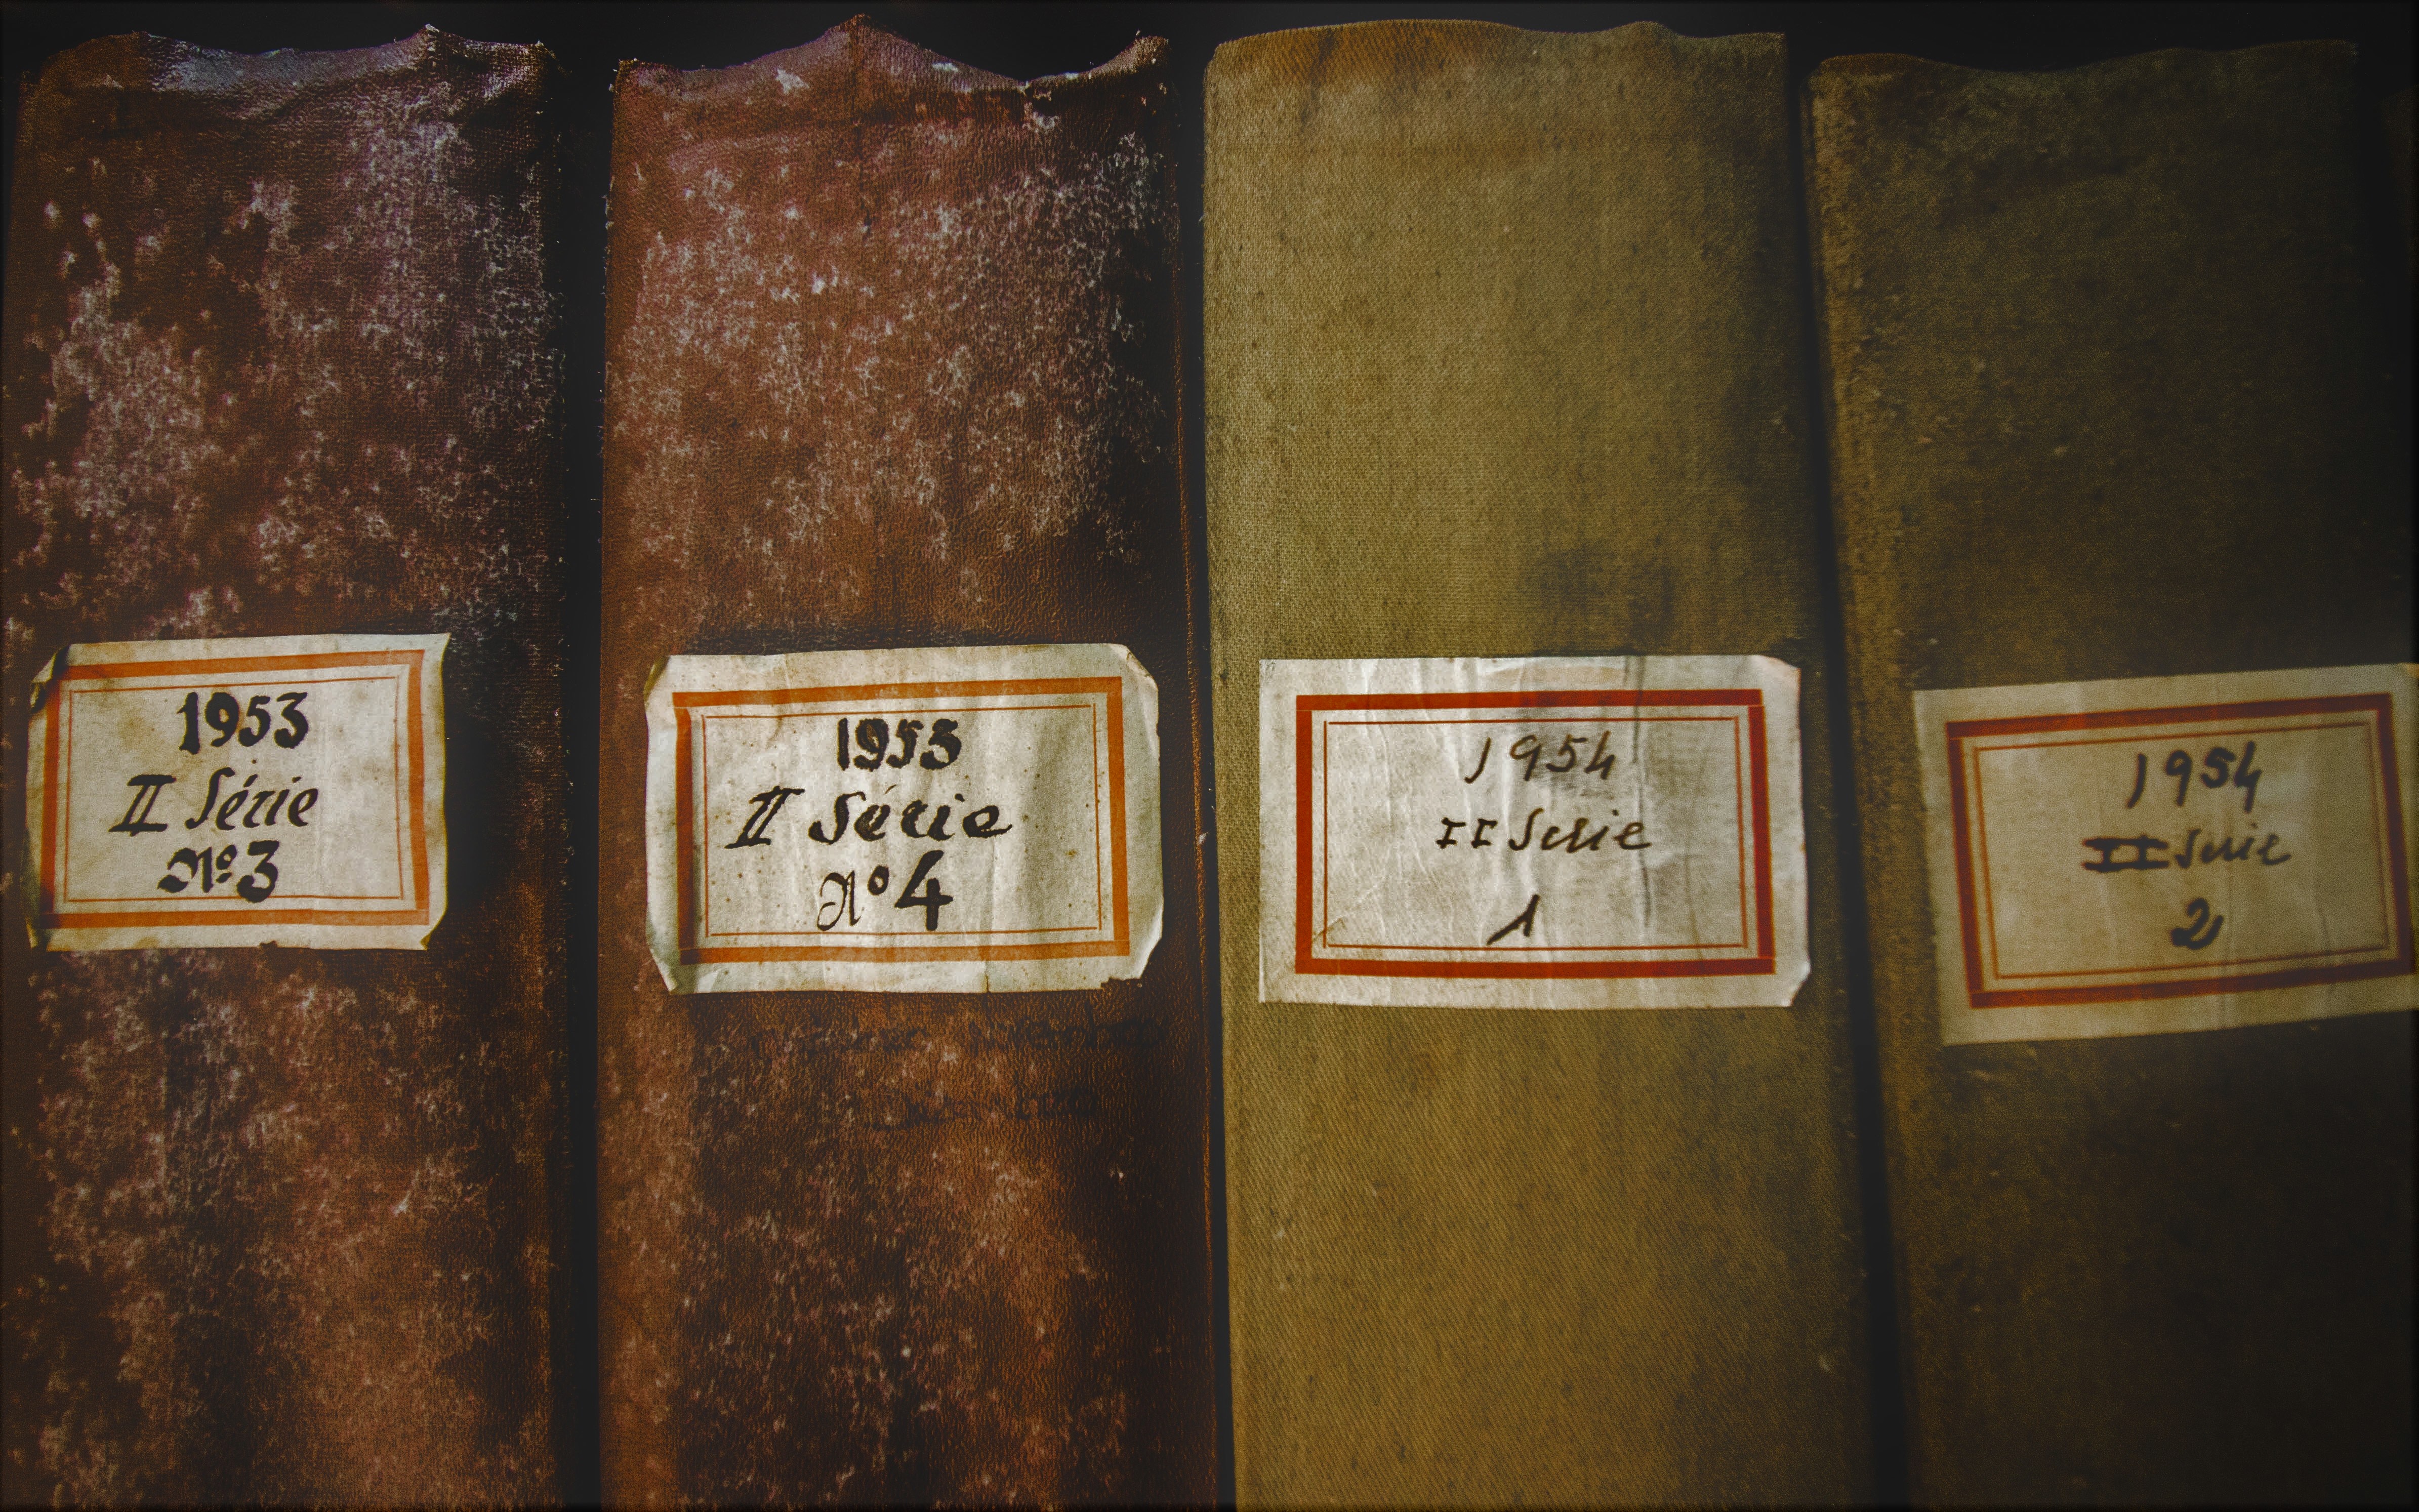 1953
II Série
Nº 3
1953
II Série
nº 4
1954
II Serie
1
1954
II Serie
2